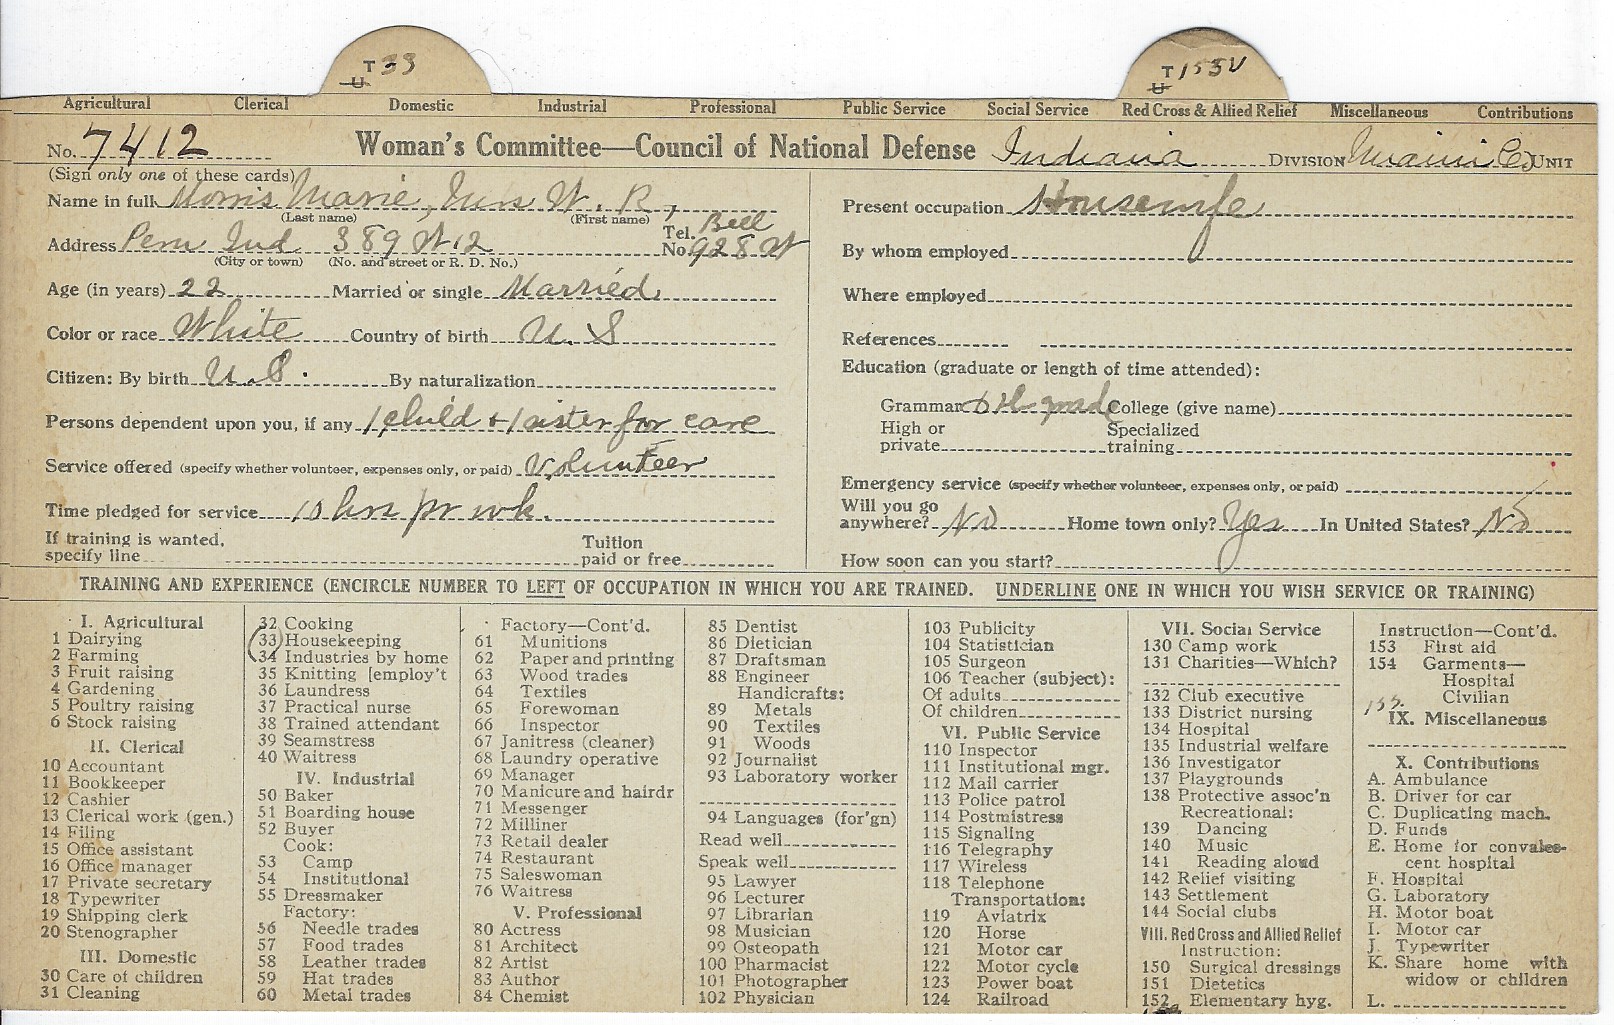 T 33
U
T 155 V
U
Agricultural Clerical Domestic Industrial Professional Public Service Social Service Red Cross & Allied Relief Miscellaneous Contributions
No. 7412 Woman's Committee—Council of National Defense Indiana DIVISION Miami Co UNIT
(Sign only one of these cards)
Name in full Morris Marie, Mrs W. R,
(Last name) (First name)
Address Peru Ind 389 W 12 Tel. No. Bell 928 W
(City or town) (No. and street or R. D. No.)
Age (in years) 22 Married or single Married
Color or race White Country of birth U. S
Citizen: By birth U. S. By naturalization
Persons dependent upon you, if any 1 child + 1 sister for care
Service offered (specify whether volunteer, expenses only, or paid) Volunteer
Time pledged for service 10 hrs pr wk.
If training is wanted, specify line Tuition paid or free
Present occupation Housewife
By whom employed
Where employed
References
Education (graduate or length of time attended):
Grammar grade College (give name)
High or private Specialized training
Emergency service (specify whether volunteer, expenses only, or paid)
Will you go anywhere? No Home town only? Yes In United States? No
How soon can you start?
TRAINING AND EXPERIENCE (ENCIRCLE NUMBER TO LEFT OF OCCUPATION IN WHICH YOU ARE TRAINED. UNDERLINE ONE IN WHICH YOU WISH SERVICE OR TRAINING)
I. Agricultural
1 Dairying
2 Farming
3 Fruit raising
4 Gardening
5 Poultry raising
6 Stock raising
II. Clerical
10 Accountant
11 Bookkeeper
12 Cashier
13 Clerical work (gen.)
14 Filing
15 Office assistant
16 Office manager
17 Private secretary
18 Typewriter
19 Shipping clerk
20 Stenographer
III. Domestic
30 Care of children
31 Cleaning
32 Cooking
33 Housekeeping
34 Industries by home
35 Knitting [employ't
36 Laundress
37 Practical nurse
38 Trained attendant
39 Seamstress
40 Waitress
IV. Industrial
50 Baker
51 Boarding house
52 Buyer
Cook:
53 Camp
54 Institutional
55 Dressmaker
Factory:
56 Needle trades
57 Food trades
58 Leather trades
59 Hat trades
60 Metal trades
Factory—Cont'd.
61 Munitions
62 Paper and printing
63 Wood trades
64 Textiles
65 Forewoman
66 Inspector
67 Janitress (cleaner)
68 Laundry operative
69 Manager
70 Manicure and hairdr
71 Messenger
72 Milliner
73 Retail dealer
74 Restaurant
75 Saleswoman
76 Waitress
V. Professional
80 Actress
81 Architect
82 Artist
83 Author
84 Chemist
85 Dentist
86 Dietician
87 Draftsman
88 Engineer
Handicrafts:
89 Metals
90 Textiles
91 Woods
92 Journalist
93 Laboratory worker
94 Languages (for'gn)
Read well
Speak well
95 Lawyer
96 Lecturer
97 Librarian
98 Musician
99 Osteopath
100 Pharmacist
101 Photographer
102 Physician
103 Publicity
104 Statistician
105 Surgeon
106 Teacher (subject):
Of adults
Of children
VI. Public Service
110 Inspector
111 Institutional mgr.
112 Mail carrier
113 Police patrol
114 Postmistress
115 Signaling
116 Telegraphy
117 Wireless
118 Telephone
Transportation:
119 Aviatrix
120 Horse
121 Motor car
122 Motor cycle
123 Power boat
124 Railroad
VII. Social Service
130 Camp work
131 Charities—Which?
132 Club executive
133 District nursing
134 Hospital
135 Industrial welfare
136 Investigator
137 Playgrounds
138 Protective assoc'n
Recreational:
139 Dancing
140 Music
141 Reading aloud
142 Relief visiting
143 Settlement
144 Social clubs
VIII. Red Cross and Allied Relief
Instruction:
150 Surgical dressings
151 Dietetics
152 Elementary hyg.
Instruction—Cont'd.
153 First aid
154 Garments—
Hospital
Civilian
155.
IX. Miscellaneous
X. Contributions
A. Ambulance
B. Driver for car
C. Duplicating mach.
D. Funds
E. Home for convalescent hospital
F. Hospital
G. Laboratory
H. Motor boat
I. Motor car
J. Typewriter
K. Share home with
widow or children
L.